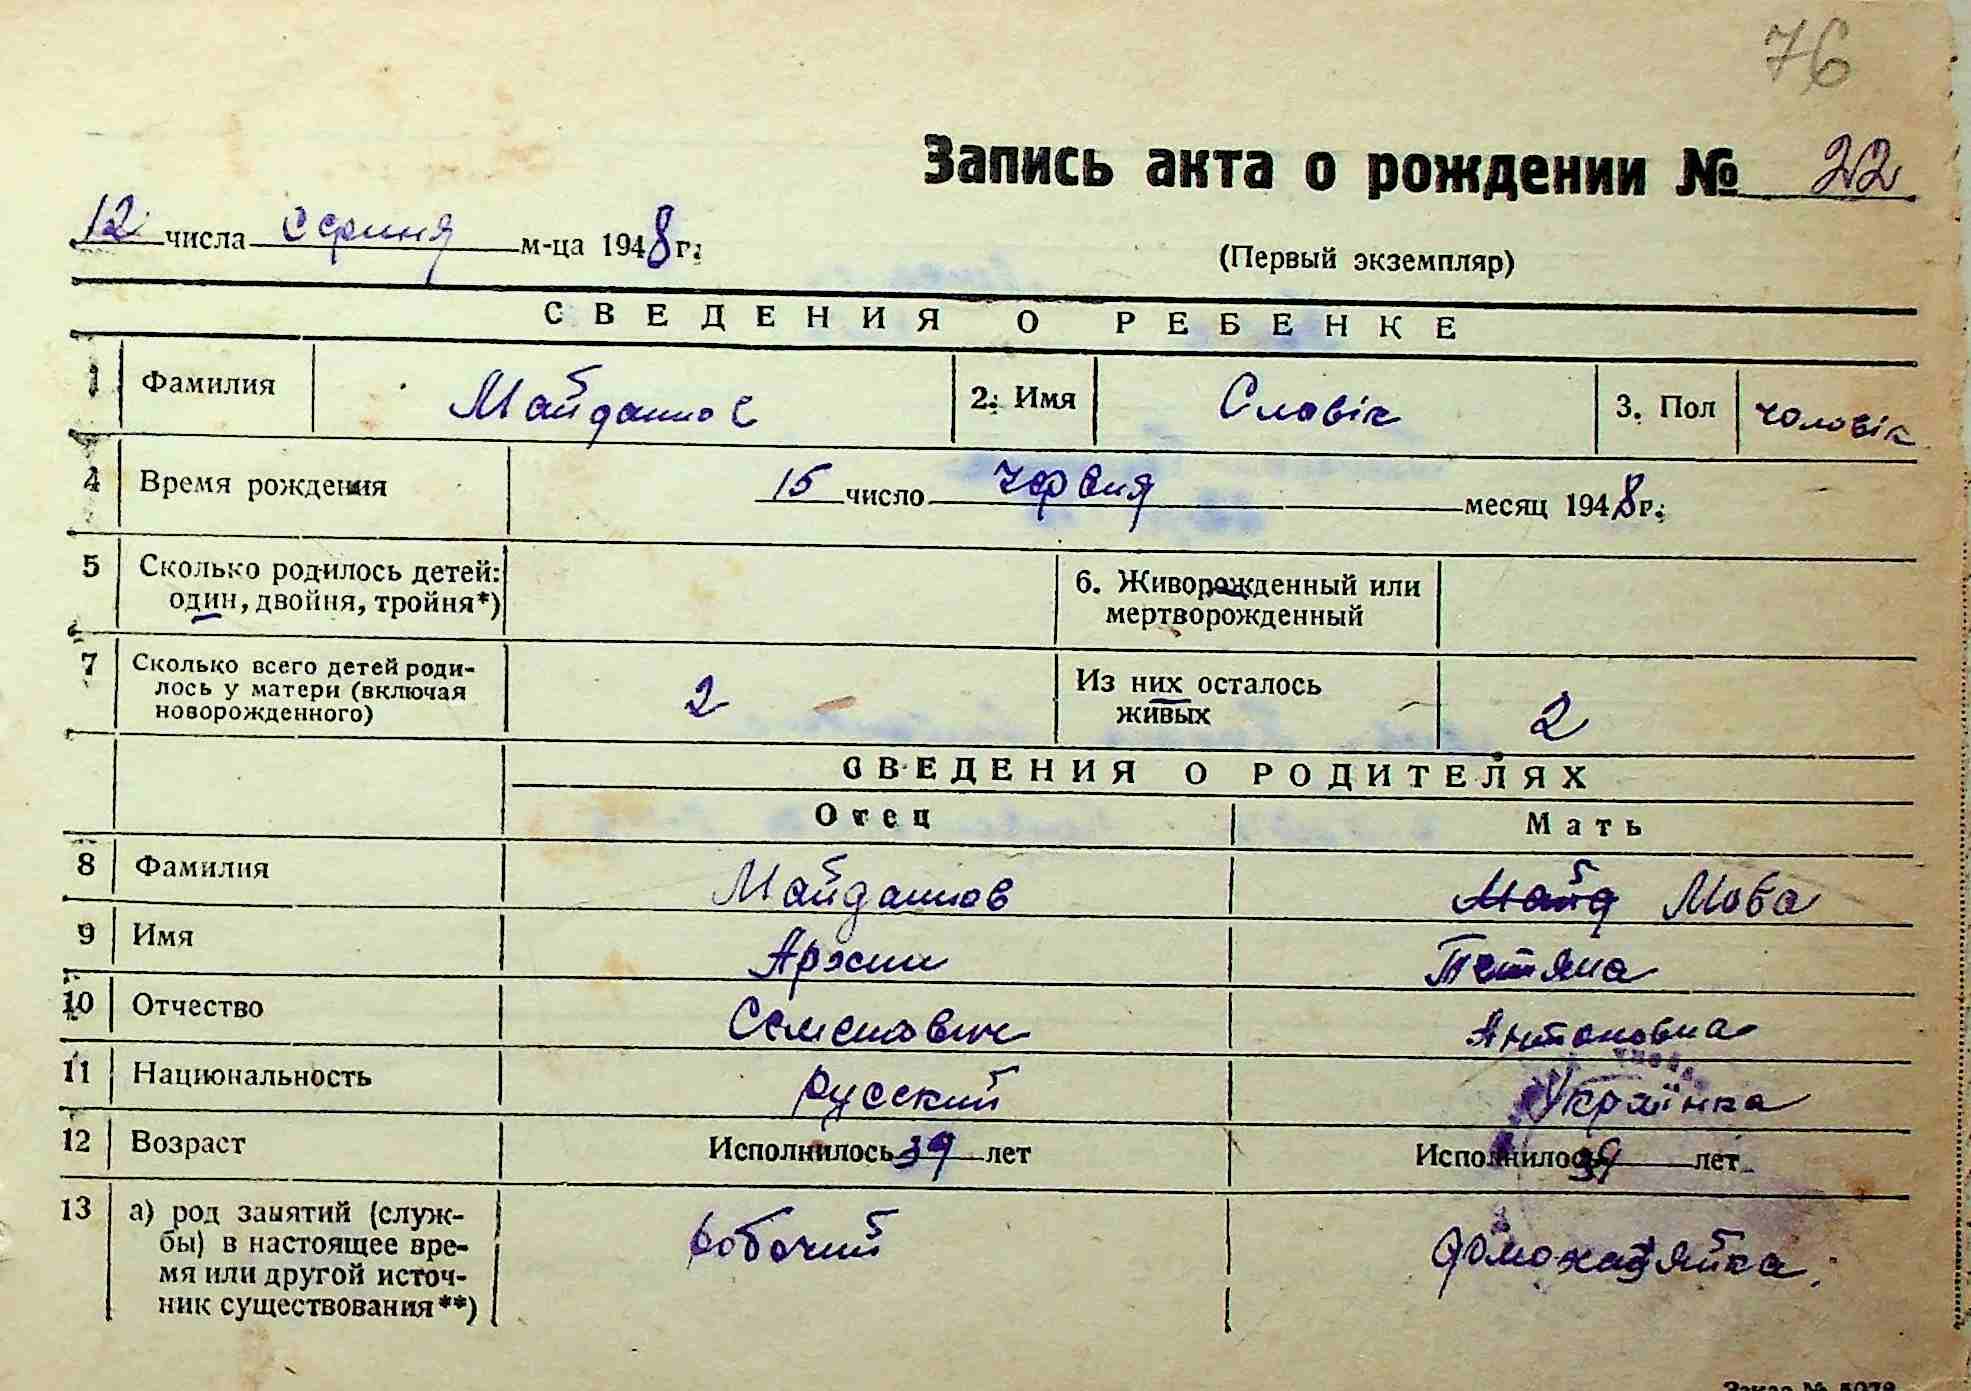 76
Запись акта о рождении № 22
12 числа серпня м-ца 1948 г.
(Первый экземпляр)
СВЕДЕНИЯ О РЕБЕНКЕ
1 Фамилия Майданнов 2. Имя Словік 3. Пол чоловік
4 Время рождения 15 число червня месяц 1948 г.
5 Сколько родилось детей: один, двойня, тройня*) 6. Живорожденный или мертворожденный
7 Сколько всего детей родилось у матери (включая новорожденного) 2 Из них осталось живых 2
СВЕДЕНИЯ О РОДИТЕЛЯХ
Отец Мать
8 Фамилия Майданнов Майд Мова
9 Имя Тетяна
10 Отчество Семенович Антоновна
11 Национальность русский Українка
12 Возраст Исполнилось 39 лет Исполнилось 39 лет
13 а) род занятий (службы) в настоящее время или другой источник существования**) робочий домохазяйка
Заказ № 5078